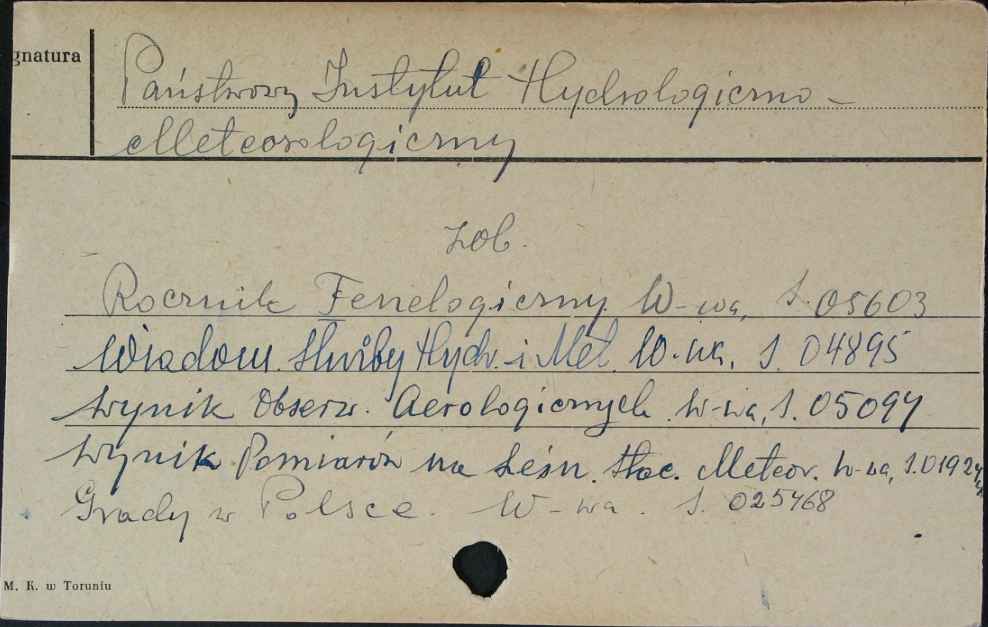 gnatura
Państwowy Instytut Hydrologiczno-
Meteorologiczny
Zob.
Rocznik Fenelogiczny W-wa, S. 05603
Wiadom. Służby Hydr. i Met. W-wa, S. 04895
Wynik Obserw. Aerologicznych W-wa, S. 05094
Wynik Pomiarów na Leśn. Stac. Meteor. W-wa, S.
Grady w Polsce. W-wa. S. 025468
M. K. w Toruniu